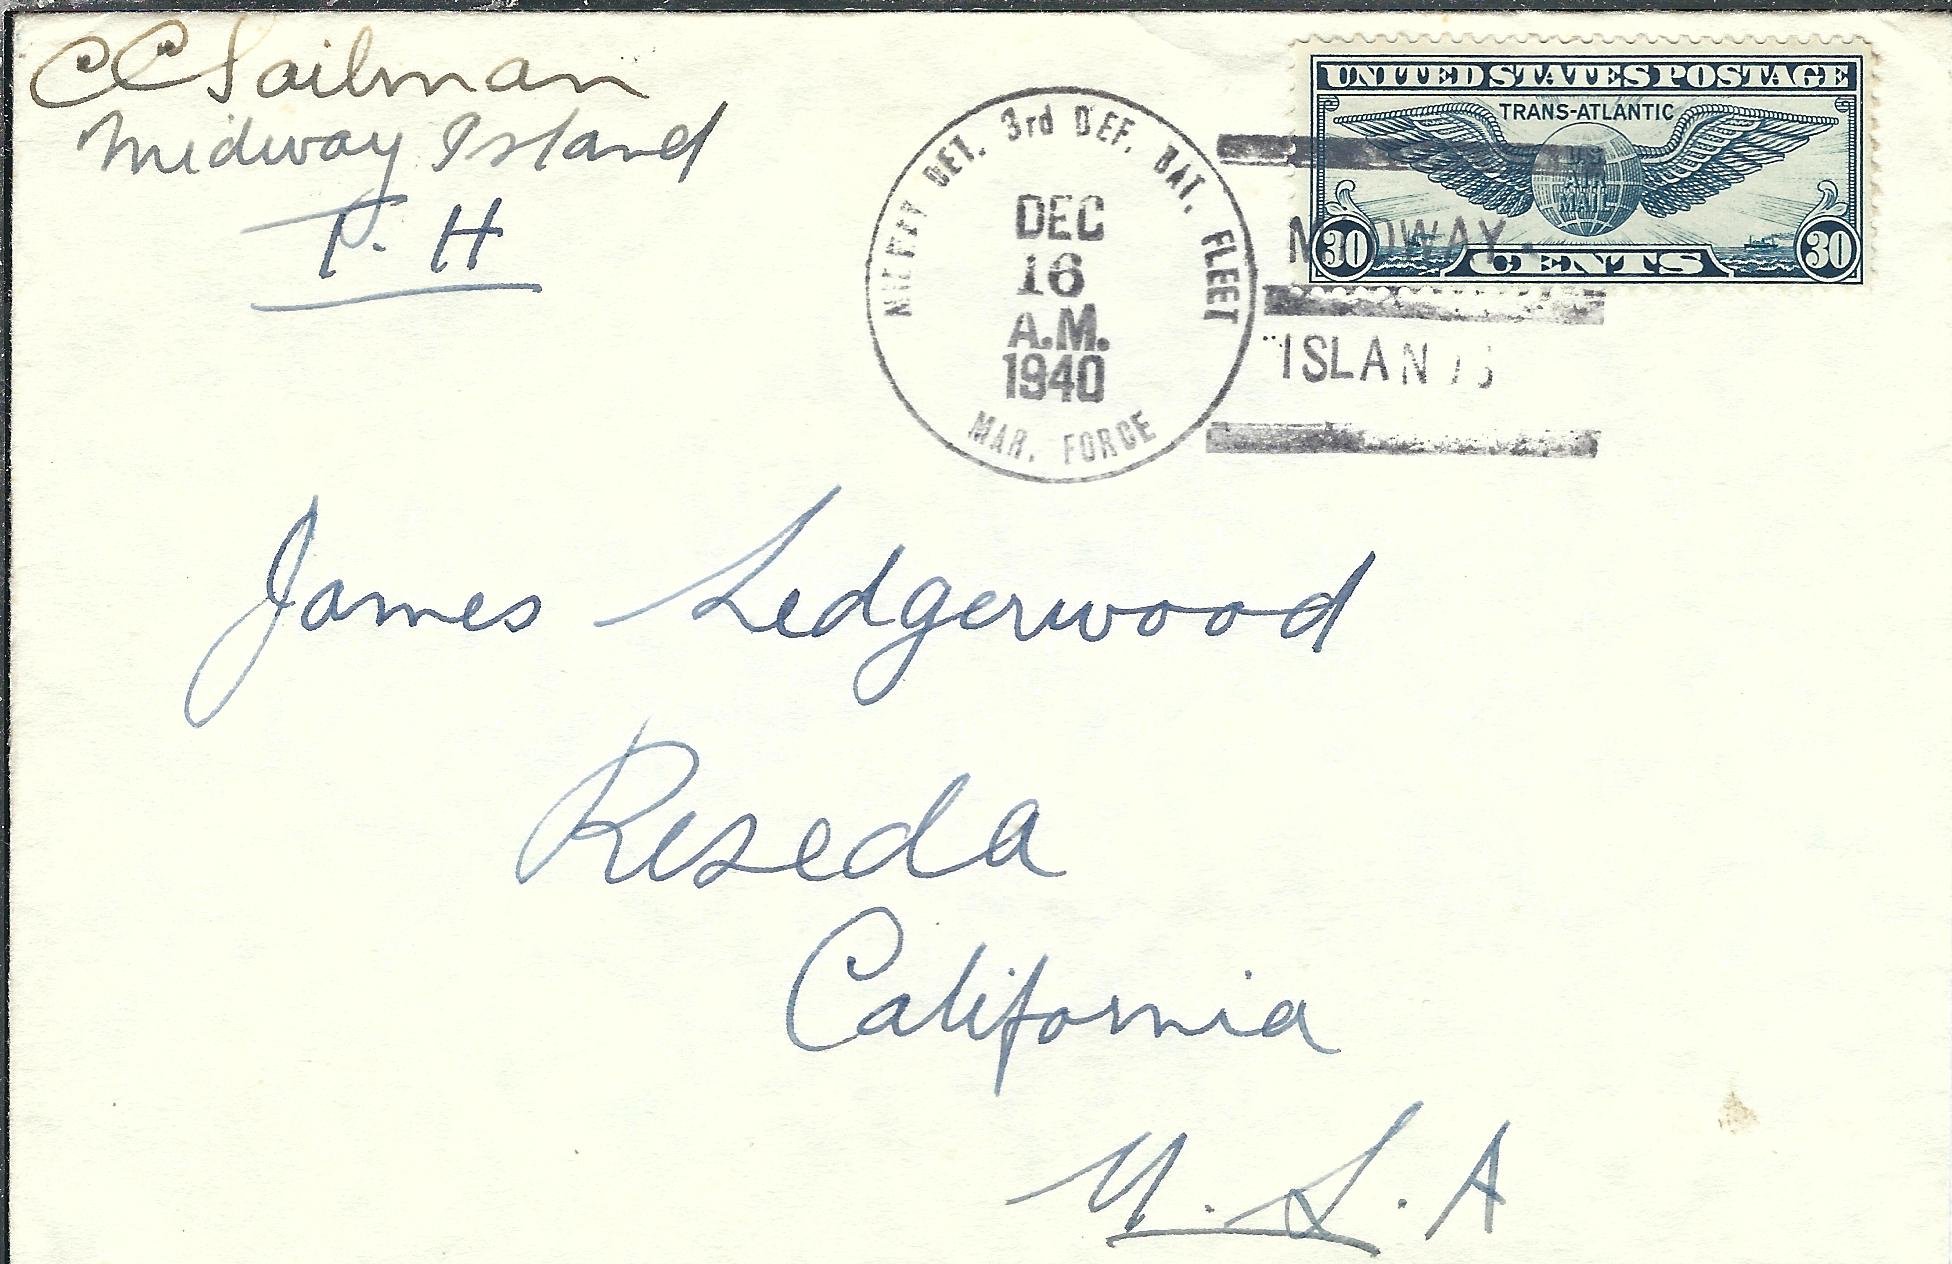 CC Sailman
Midway Island
T. H
M'LREP DET. 3rd DEF. BAT. FLEET
MAR. FORCE
DEC
16
A.M.
1940
MIDWAY
ISLANDS
UNITED STATES POSTAGE
TRANS-ATLANTIC
U.S.
AIR
MAIL
30 CENTS 30
James Ledgerwood
Reseda
California
U.S.A